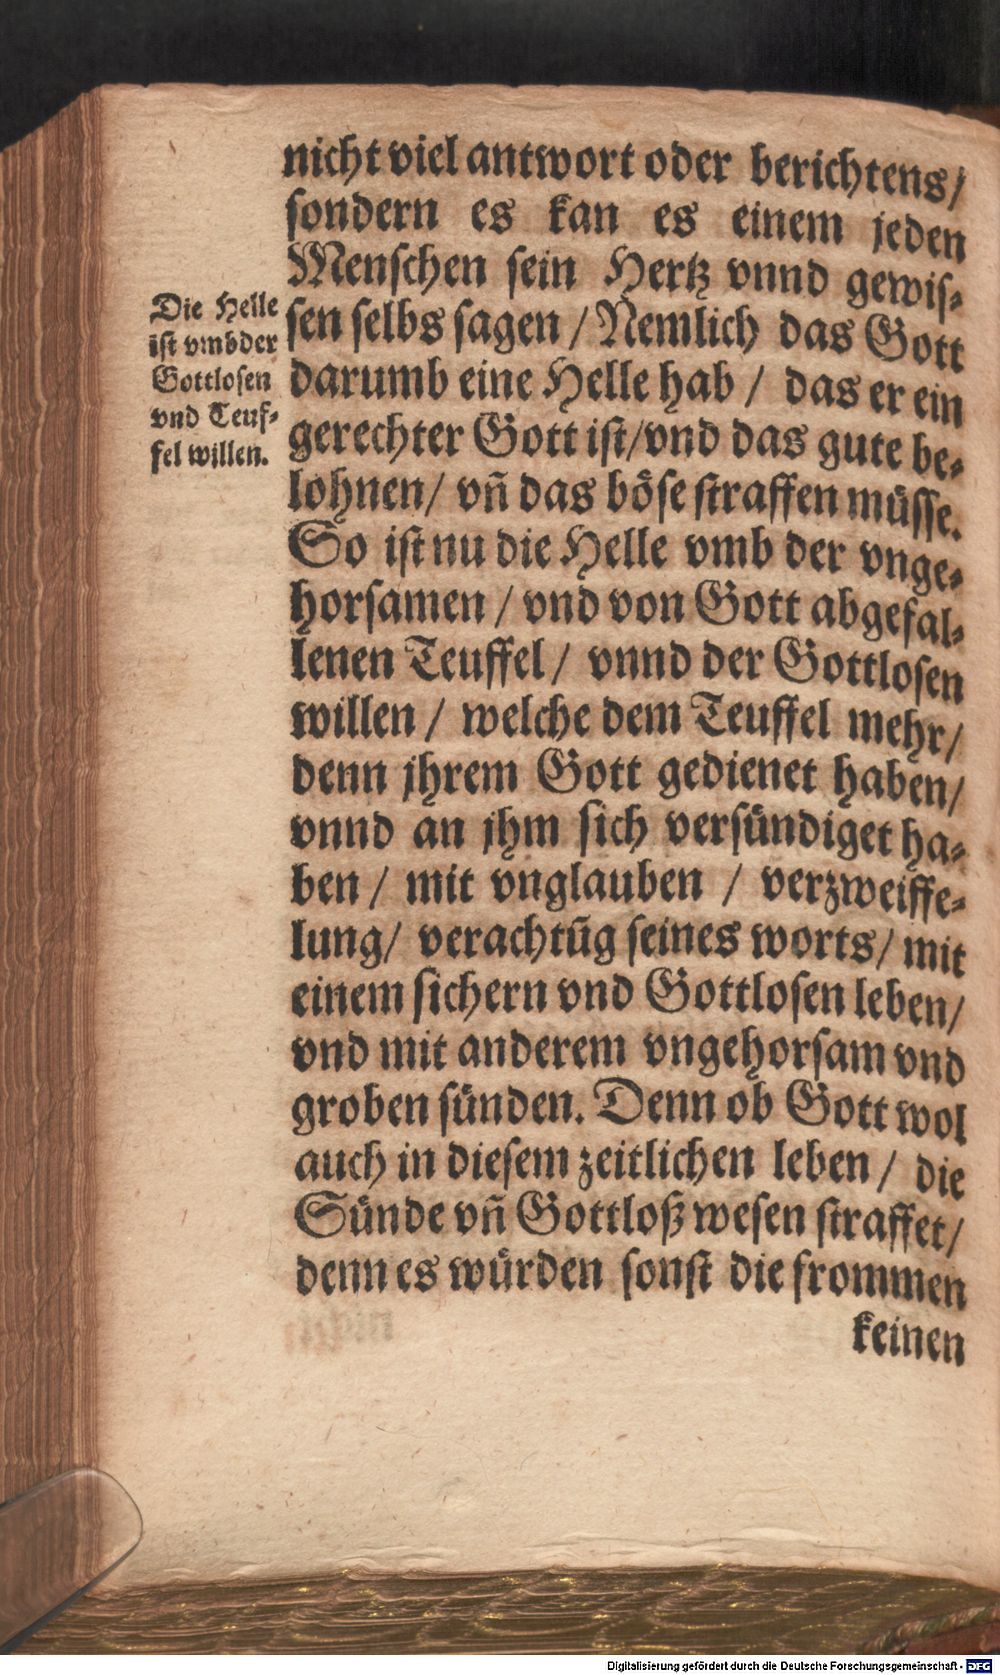 nicht viel antwort oder berichtens/
sondern es kan es einem jeden
Menschen sein Hertz vnnd gewis⸗
sen selbs sagen / Nemlich das Gott
darumb eine Helle hab / das er ein
gerechter Gott ist/vnd das gute be⸗
lohnen/ vñ das böse straffen müsse.
So ist nu die Helle vmb der vnge⸗
horsamen / vnd von Gott abgefal⸗
lenen Teuffel / vnnd der Gottlosen
willen / welche dem Teuffel mehr/
denn jhrem Gott gedienet haben/
vnnd an jhm sich versündiget ha⸗
ben / mit vnglauben / verzweiffe⸗
lung/ verachtũg seines worts/ mit
einem sichern vnd Gottlosen leben/
vnd mit anderem vngehorsam vnd
groben sünden. Denn ob Gott wol
auch in diesem zeitlichen leben / die
Sünde vñ Gottloß wesen straffet/
denn es würden sonst die frommen
keinen
Die Helle
ist vmb der
Gottlosen
vnd Teuf⸗
fel willen.
Digitalisierung gefördert durch die Deutsche Forschungsgemeinschaft - DFG